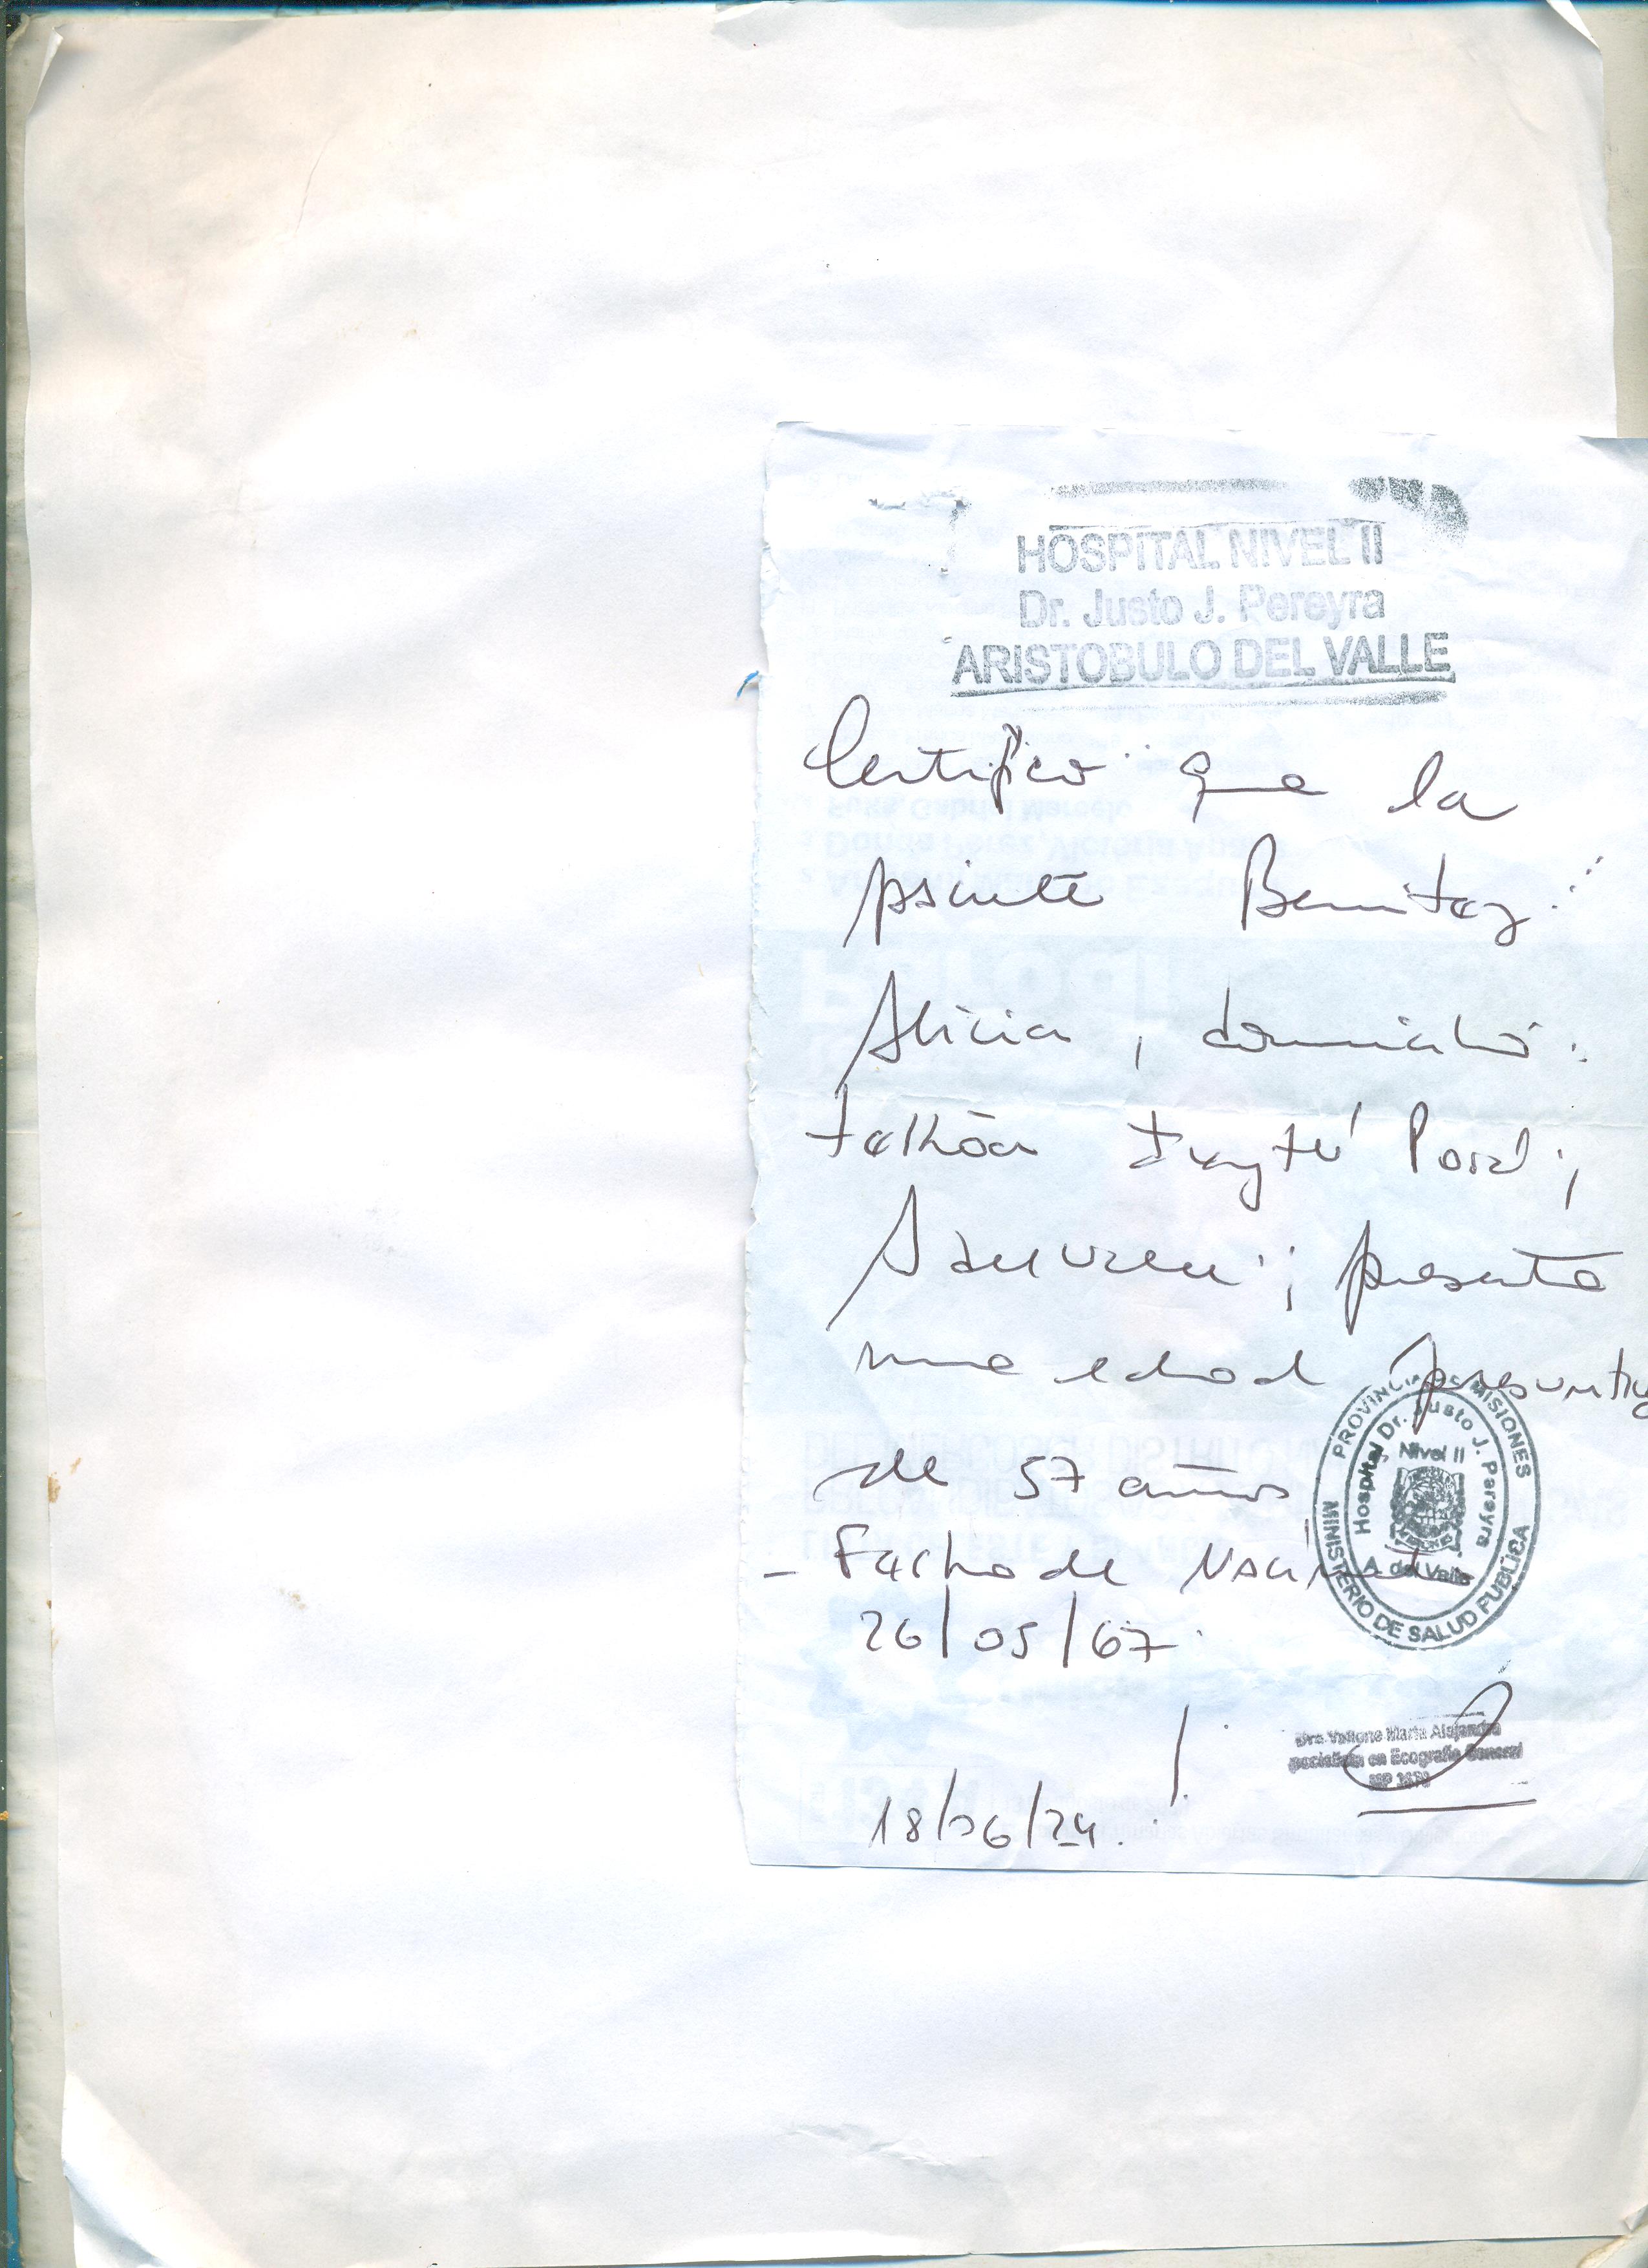 HOSPITAL NIVEL II
Dr. Justo J. Pereyra
ARISTOBULO DEL VALLE
Certifico que la
paciente Benitez
Alicia, domicilio:
Tekhoa Porá;
presenta
una edad presuntiva
de 57 años
- Fecha de Nacimiento
26/05/67
PROVINCIA DE MISIONES
Hospital Dr. Justo J. Pereyra
Nivel II
A. del Valle
MINISTERIO DE SALUD PUBLICA
Dra. Maria Alejandra
Especialista en Ecografia General
18/06/24.